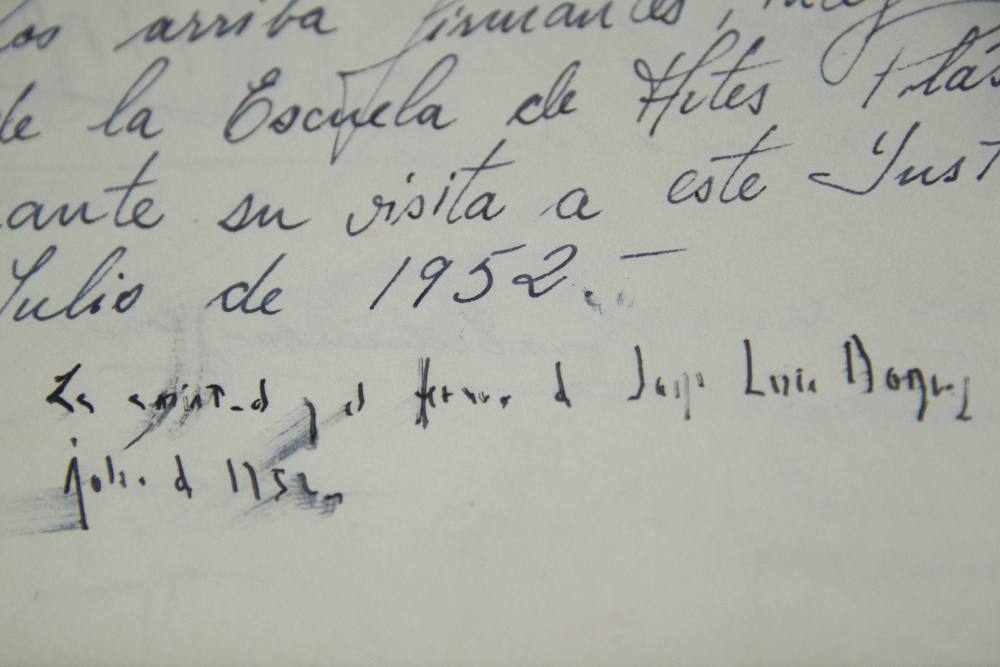 los arriba firmantes,
de la Escuela de Artes Plás
ante su visita a este Inst
Julio de 1952. —
La amistad y el fervor de Jorge Luis Borges
julio de 1952